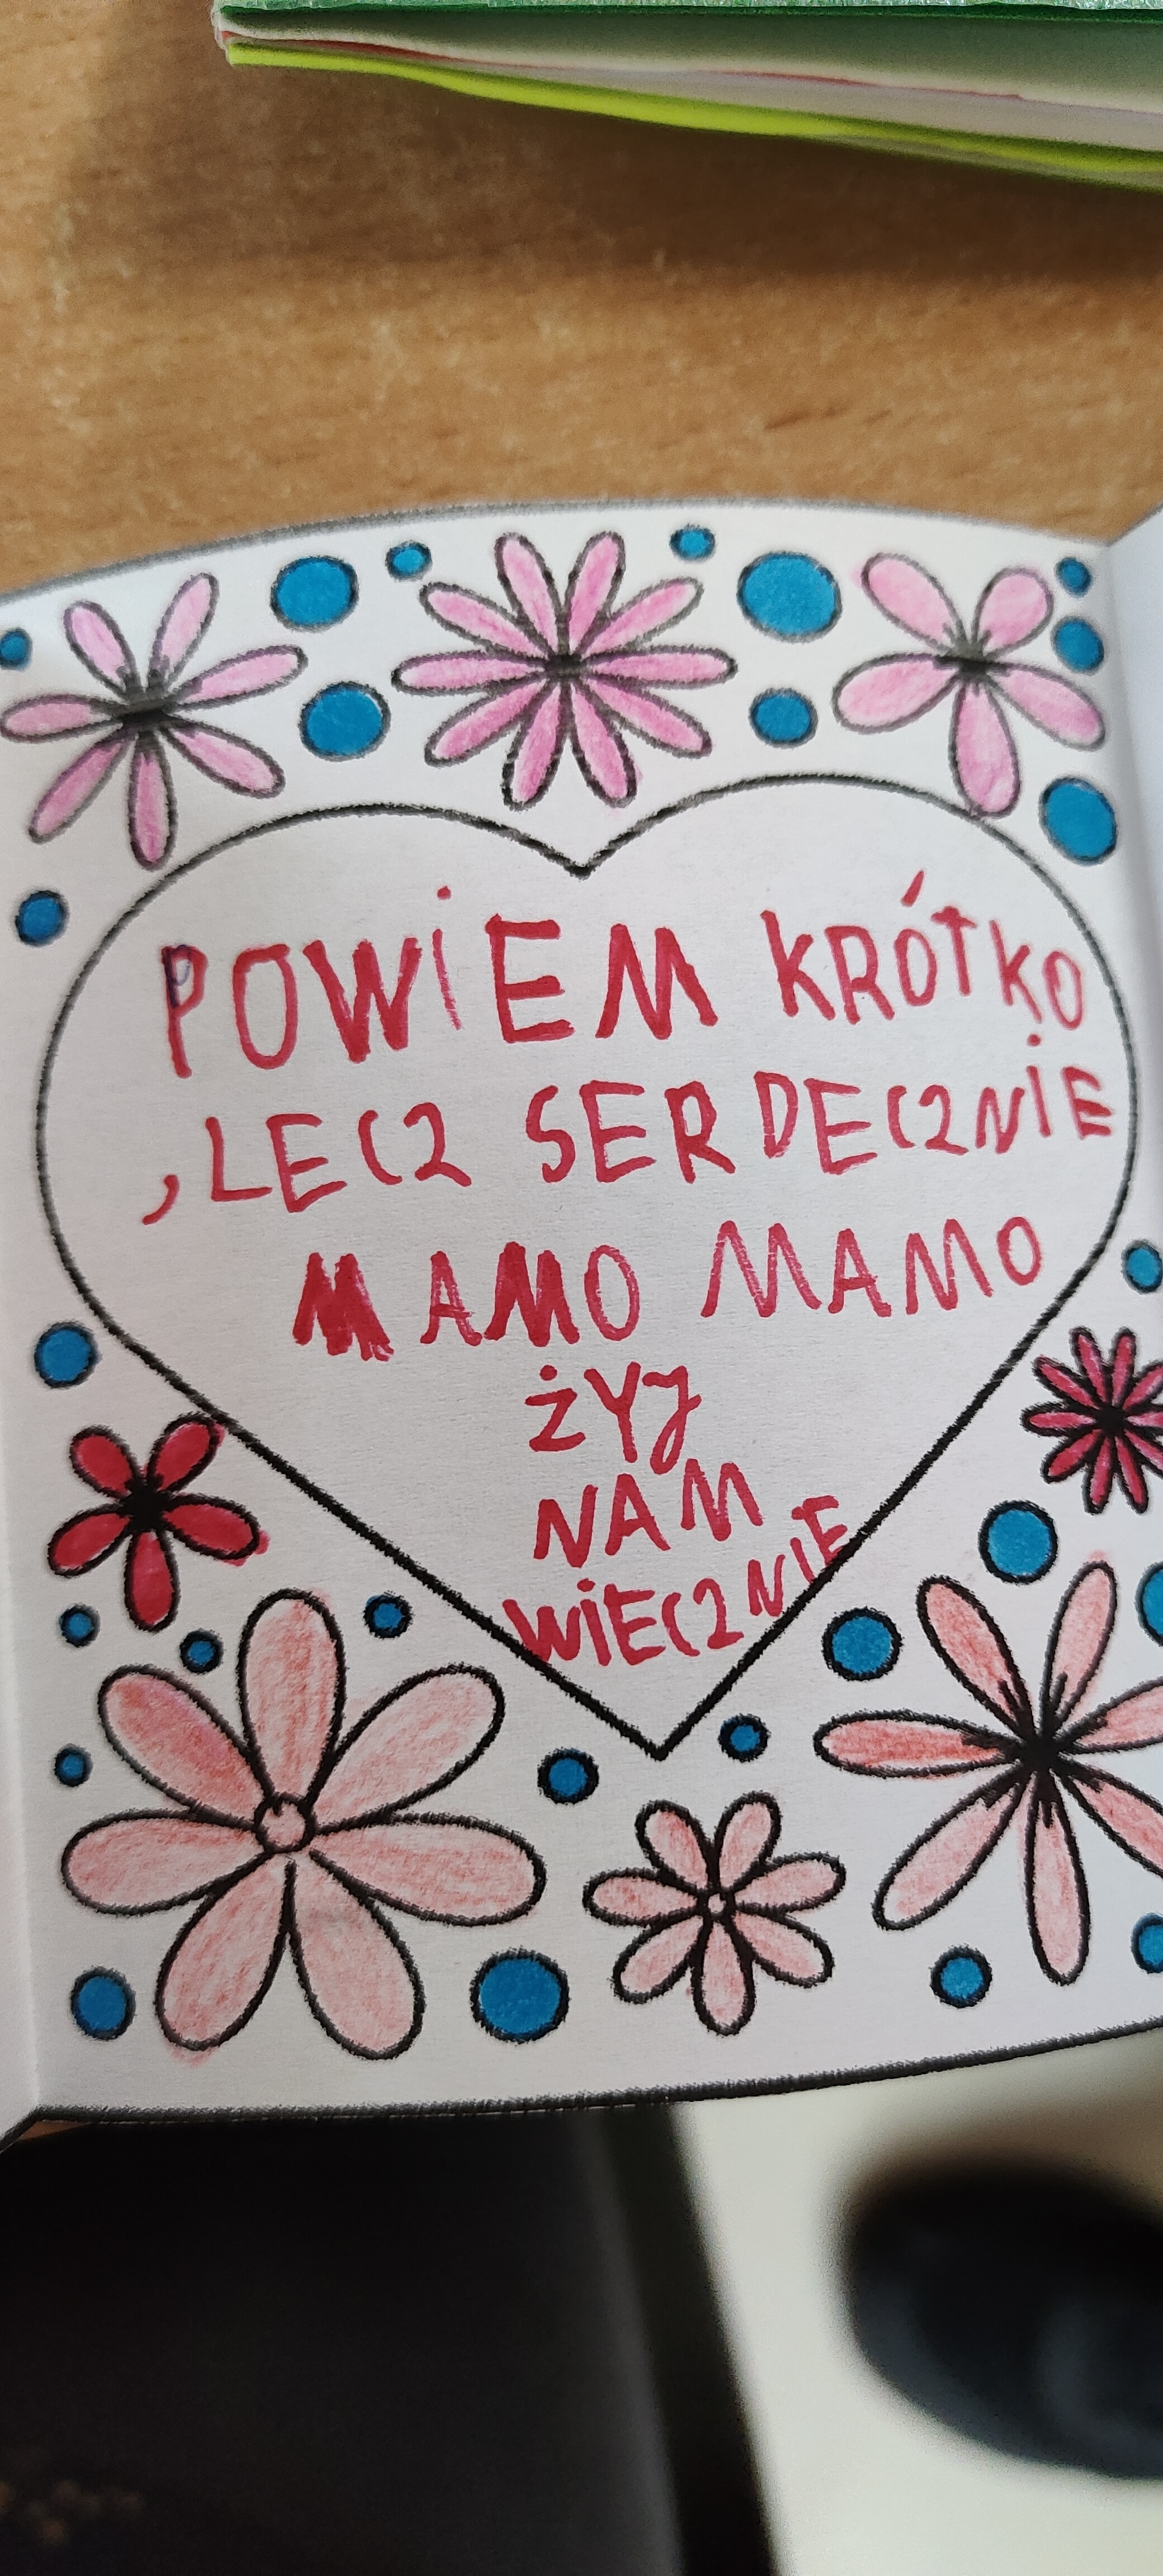 POWIEM KRÓTKO
,LECZ SERDECZNIE
MAMO MAMO
ŻYJ
NAM
WIECZNIE